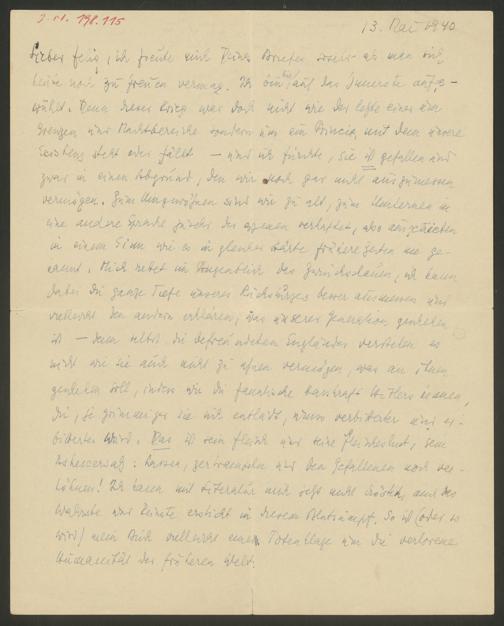 I.N. 198.115
13. Mai 1940
Lieber Felix, ich freute mich Deines Briefes soweit als man sich
heute noch zu freuen vermag. Ich bin auf das Innerste aufge-
wühlt. Denn dieser Krieg war doch nicht wie der letzte einer um
Grenzen und Machtbereiche sondern um ein Princip mit dem unsere
Existenz steht oder fällt – und ich fürchte, sie ist gefallen und
zwar in einen Abgrund, den wir noch gar nicht auszumessen
vermögen. Zum Umgewöhnen sind wir zu alt, zum Umlernen in
eine andere Sprache jenseits der eigenen verhaftet, also ausgestoßen
in einem Sinn wie es in gleicher Härte frühere Zeiten nie ge-
kannt. Mich rettet im Augenblick das
dabei die ganze Tiefe unseres Rücksturzes besser ausmessen und
vielleicht den andern erklären, was unserer Generation geschehen
ist – denn selbst die befreundeten Engländer verstehen es
nicht wie sie auch nicht zu ahnen vermögen, was an ihnen
geschehen soll, indess wir die fanatische Hasskraft Hitlers kennen,
die, je grimmiger sie sich entlädt, umso verbitterter und er-
bitterter wird. Das ist sein Fleisch und seine
hassen, zertrampeln und den Gefallenen noch ver-
höhnen! Ich kann mit Literatur mich jetzt nicht trösten, auch das
Wahrste und Reinste erstickt in diesem Blutsumpf. So ist (oder es
wird) mein Buch vielleicht eine Totenklage um die verlorene
Humanität der früheren Welt.